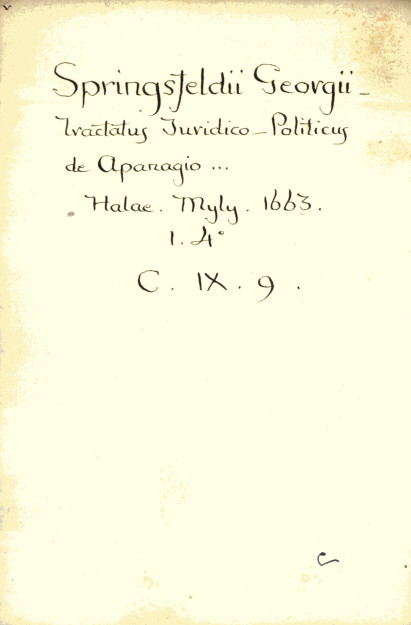 Springsfeldii Georgii_
Tractatus Juridico-Politicus
de Apanagio ...
Halae. Myly. 1663.
1. 4°
C. IX. 9.
C